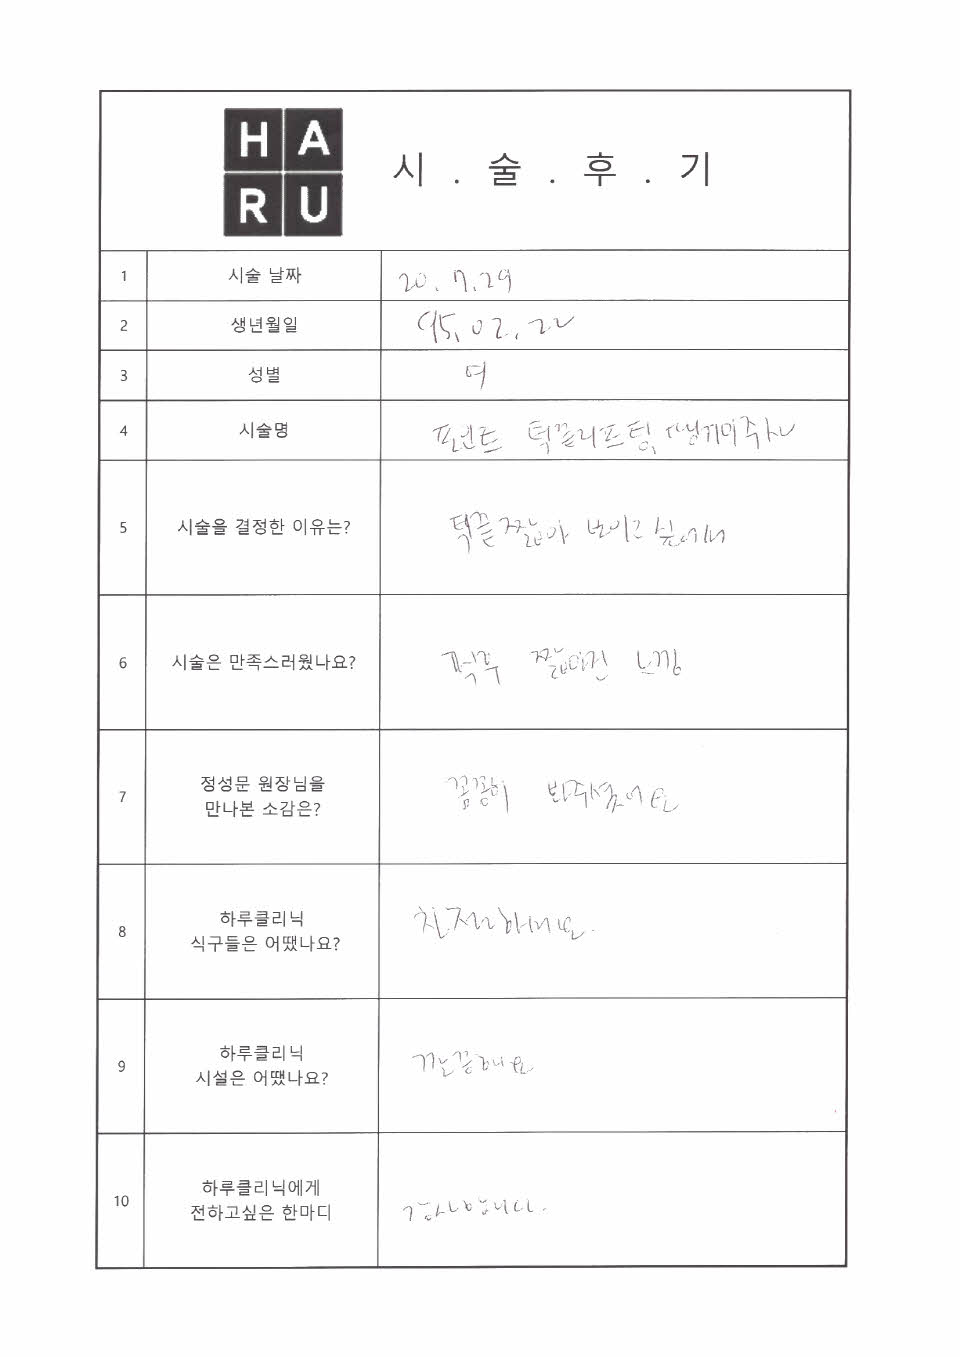 HA
RU
시.술.후.기
1 시술 날짜 20.7.29
2 생년월일 95.02.22
3 성별 여
4 시술명 포인트 턱끝리프팅, 땡기미주사
5 시술을 결정한 이유는? 턱끝 짧아 보이고 싶어서
6 시술은 만족스러웠나요? 턱이 짧아진 느낌
7 정성문 원장님을
만나본 소감은? 꼼꼼히 봐주셨어요
8 하루클리닉
식구들은 어땠나요? 친절하세요.
9 하루클리닉
시설은 어땠나요? 깔끔해요
10 하루클리닉에게
전하고싶은 한마디 감사합니다.